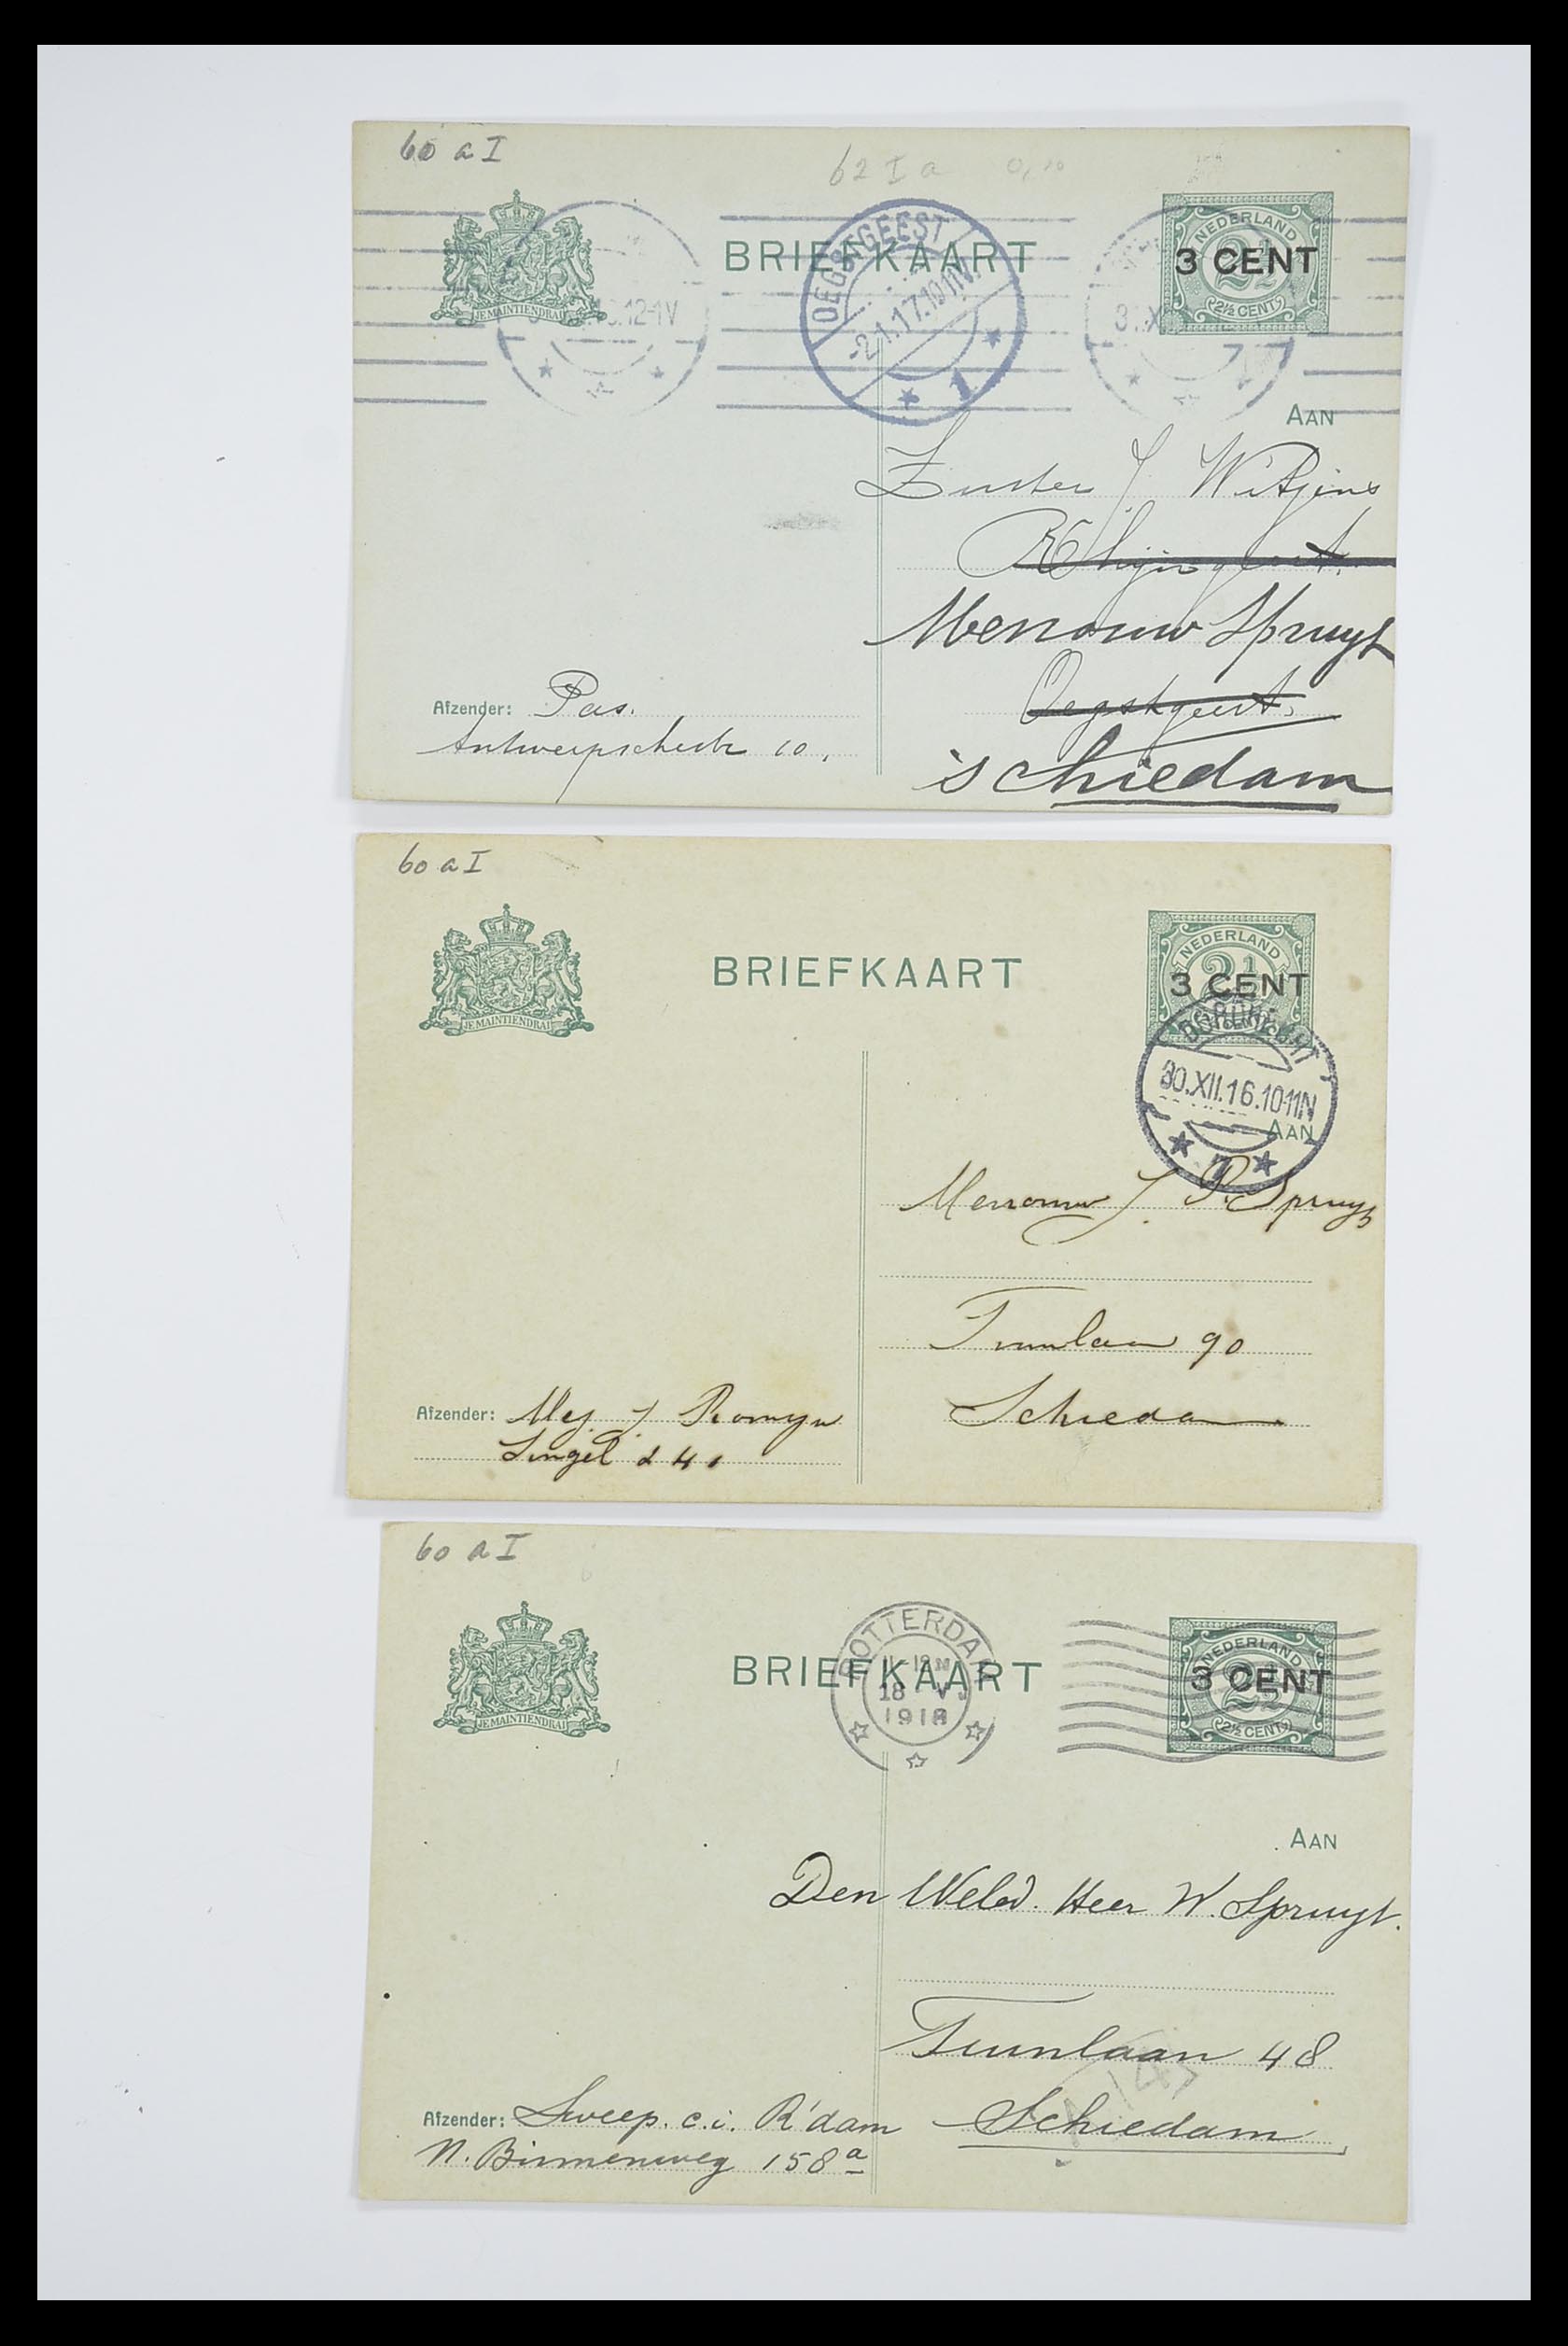 60 a I
62 I a
BRIEFKAART
OEGSTGEEST
-2.1.17.10-11V.
12-1V
NEDERLAND
2½
3 CENT
2½ CENT
JE MAINTIENDRAI
1
AAN
Zuster J. Witjens
Rhijngeest.
Mevrouw Spruyt
Oegstgeest.
'schiedam
Afzender: Pas.
Antwerpschestr 10.
60 a I
BRIEFKAART
NEDERLAND
2½
3 CENT
JE MAINTIENDRAI
DORDRECHT
30.XII.16.10-11N
AAN
Mevrouw J. P. Spruyt
Tuinlaan 90
Schiedam
Afzender: Mej. J. Romyn
Singel d 41
60 a I
BRIEFKAART
ROTTERDAM
18 V
1918
NEDERLAND
2½
3 CENT
2½ CENT
JE MAINTIENDRAI
AAN
Den WelEd. Heer W. Spruyt.
Tuinlaan 48
Schiedam
Afzender: Sweep. c.i. R'dam
N. Binnenweg 158a